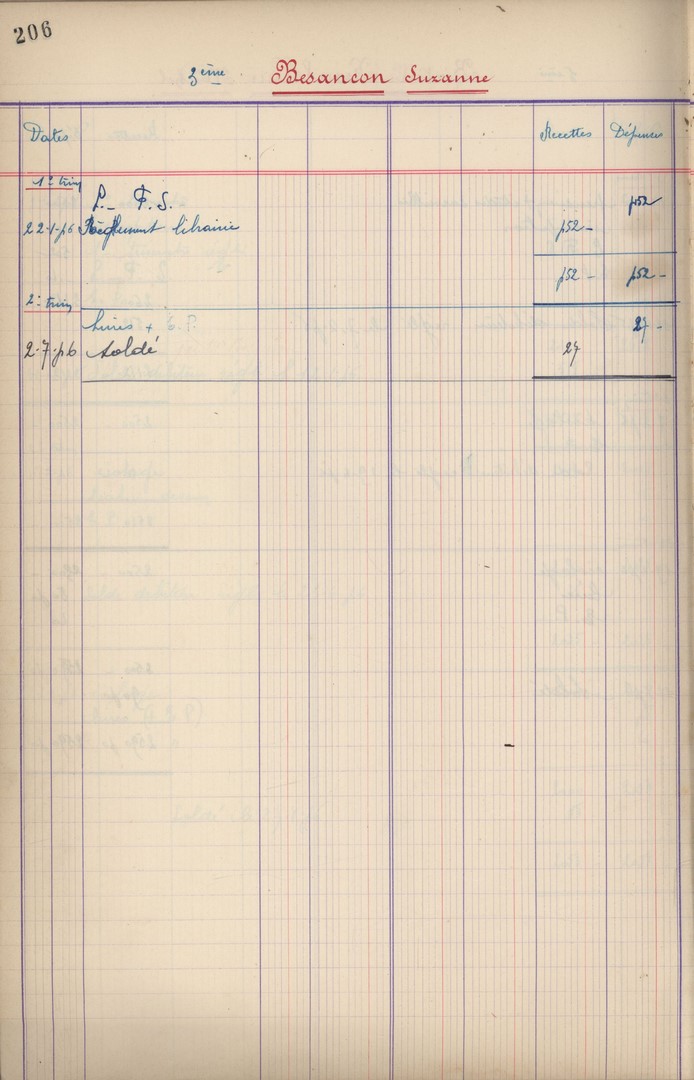 206
3ème Besancon Suzanne
Dates Recettes Dépenses
1er trim
L. _ F. S. 452
22-1-46 Règlement librairie 452 -
452 - 452 -
2e trim
Livres + 27 -
2-7-46 Soldé 27